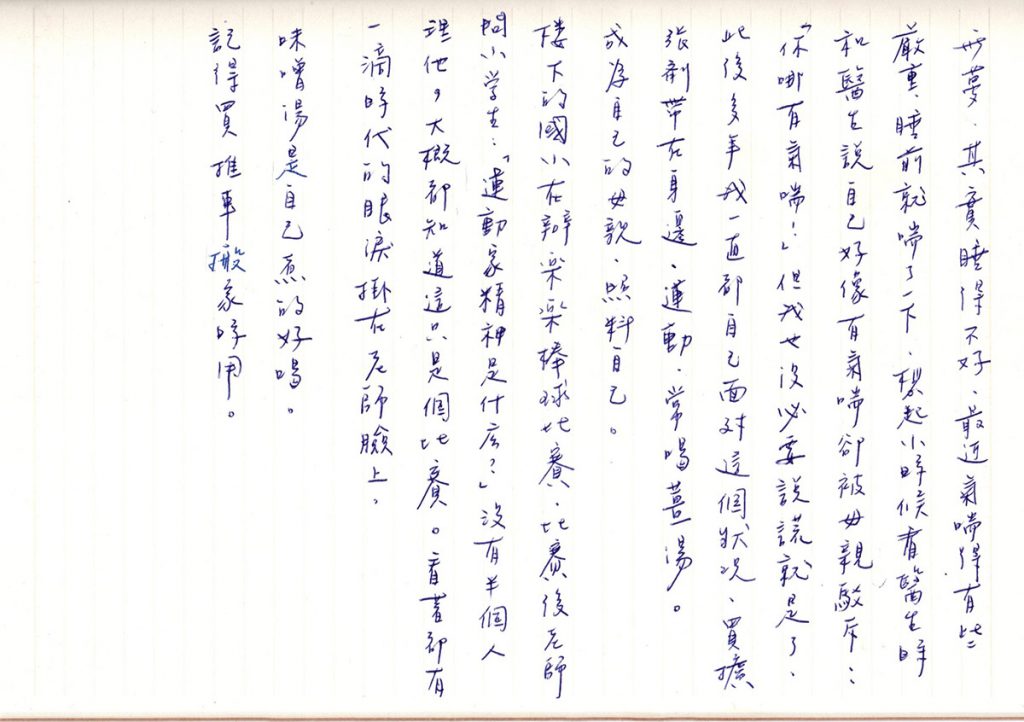 兩夢、其實睡得不好、最近氣喘得有些
嚴重、睡前就喘了一下、想起小時候看醫生時
和醫生說自己好像有氣喘卻被母親駁斥：
「你哪有氣喘！」但我也沒必要說謊就是了、
此後多年我一直都自己面對這個狀況、買擴
張劑帶在身邊、運動、常喝薑湯。
成為自己的母親、照料自己。
楼下的國小在辦樂樂棒球比賽、比賽後老師
問小学生：「運動家精神是什么？」沒有半個人
理他，大概都知道這只是個比賽。看著都有
一滴時代的眼淚掛在老師臉上、
味噌湯是自己煮的好喝。
記得買推車搬家時用。